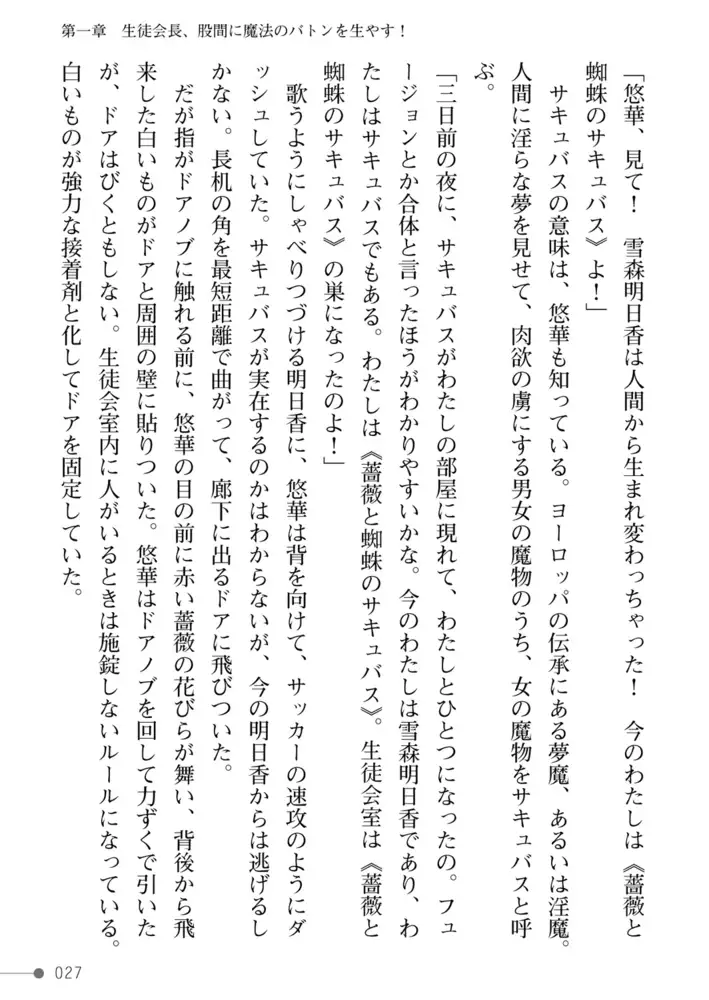 第一章　生徒会長、股間に魔法のバトンを生やす！
「悠華、見て！　雪森明日香は人間から生まれ変わっちゃった！　今のわたしは《薔薇と
蜘蛛のサキュバス》よ！」
サキュバスの意味は、悠華も知っている。ヨーロッパの伝承にある夢魔、あるいは淫魔。
人間に淫らな夢を見せて、肉欲の虜にする男女の魔物のうち、女の魔物をサキュバスと呼
ぶ。
「三日前の夜に、サキュバスがわたしの部屋に現れて、わたしとひとつになったの。フュ
ージョンとか合体と言ったほうがわかりやすいかな。今のわたしは雪森明日香であり、わ
たしはサキュバスでもある。わたしは《薔薇と蜘蛛のサキュバス》。生徒会室は《薔薇と
蜘蛛のサキュバス》の巣になったのよ！」
歌うようにしゃべりつづける明日香に、悠華は背を向けて、サッカーの速攻のようにダ
ッシュしていた。サキュバスが実在するのかはわからないが、今の明日香からは逃げるし
かない。長机の角を最短距離で曲がって、廊下に出るドアに飛びついた。
だが指がドアノブに触れる前に、悠華の目の前に赤い薔薇の花びらが舞い、背後から飛
来した白いものがドアと周囲の壁に貼りついた。悠華はドアノブを回して力ずくで引いた
が、ドアはびくともしない。生徒会室内に人がいるときは施錠しないルールになっている。
白いものが強力な接着剤と化してドアを固定していた。
027